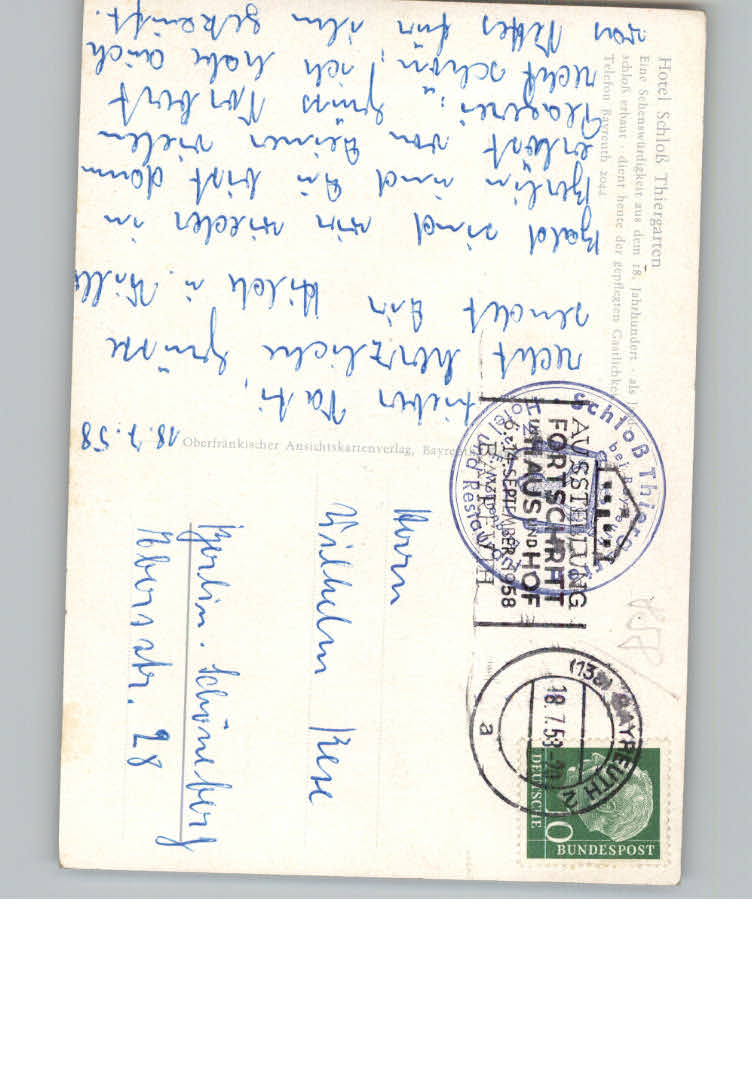 Hotel Schloß Thiergarten
Eine Sehenswürdigkeit aus dem 18. Jahrhundert - als
schloß erbaut - dient heute der gepflegten Gastlichkeit
Telefon Bayreuth 2044
18.7.58
Lieber Vati,
recht herzliche Grüsse
sendet Dir Hilde u. Willi
Bald sind wir wieder in
Berlin und Du bist dann
erlöst von Deiner vielen
Plagerei. Grüss Norbert
recht schön, ich habe auch
was Nettes für ihn gekauft.
Oberfränkischer Ansichtskartenverlag, Bayreuth
Schloß Thiergarten
bei Bayreuth
Hotel u. Restaurant
AUSSTELLUNG
FORTSCHRITT
IN HAUS UND HOF
SEPTEMBER 1958
BAYREUTH
(13a) BAYREUTH 2
18.7.58-20
a
DEUTSCHE
BUNDESPOST
10
Herrn
Wilhelm Rese
Berlin-Schöneberg
Ebersstr. 28